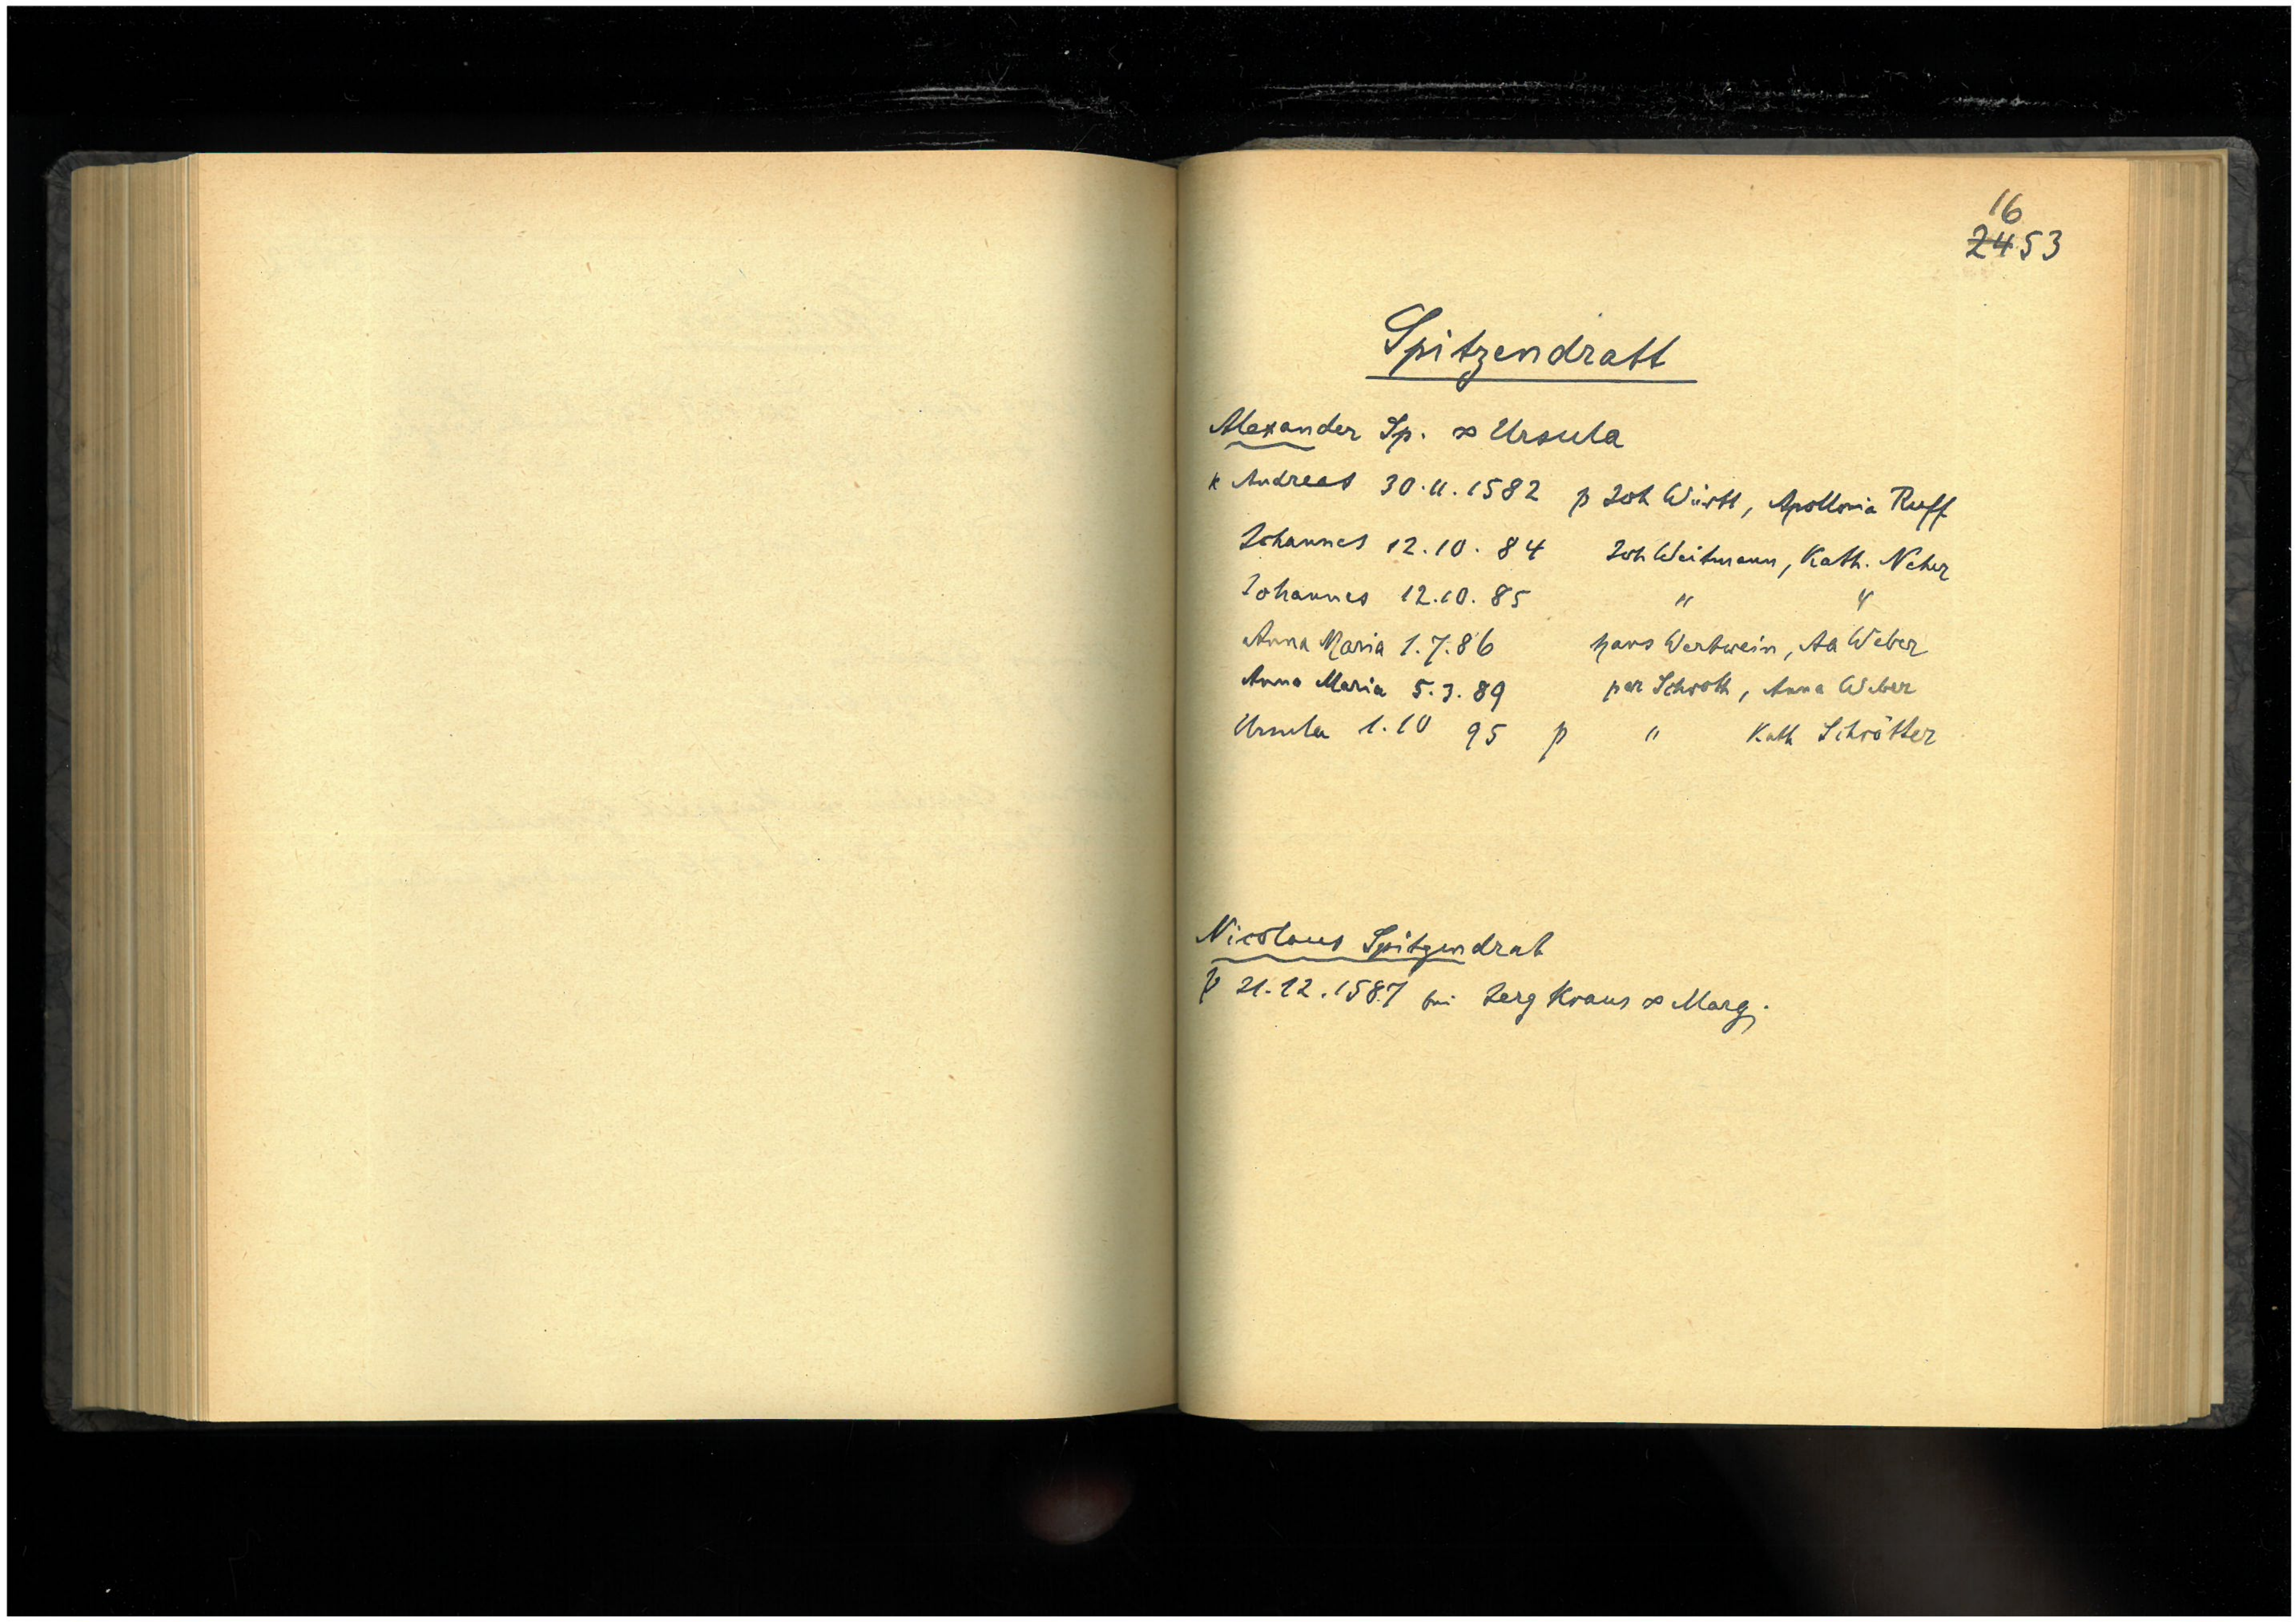 16
2453
Spitzendratt
Alexander Sp. ∞ Ursula
k Andreas 30.11.1582 p Joh Württ, Apollonia Ruff
Johannes 12.10.84 Joh Weitmann, Kath. Neher
Johannes 12.10.85 " "
Anna Maria 1.7.86 Hans Wertwein, Aa Weber
Anna Maria 5.3.89 per Schroth, Anna Weber
Ursula 1.10 95 p " Kath Schrötter
Nicolaus Spitzendrat
p 21.12.1587 bei Jerg Kraus ∞ Marg.